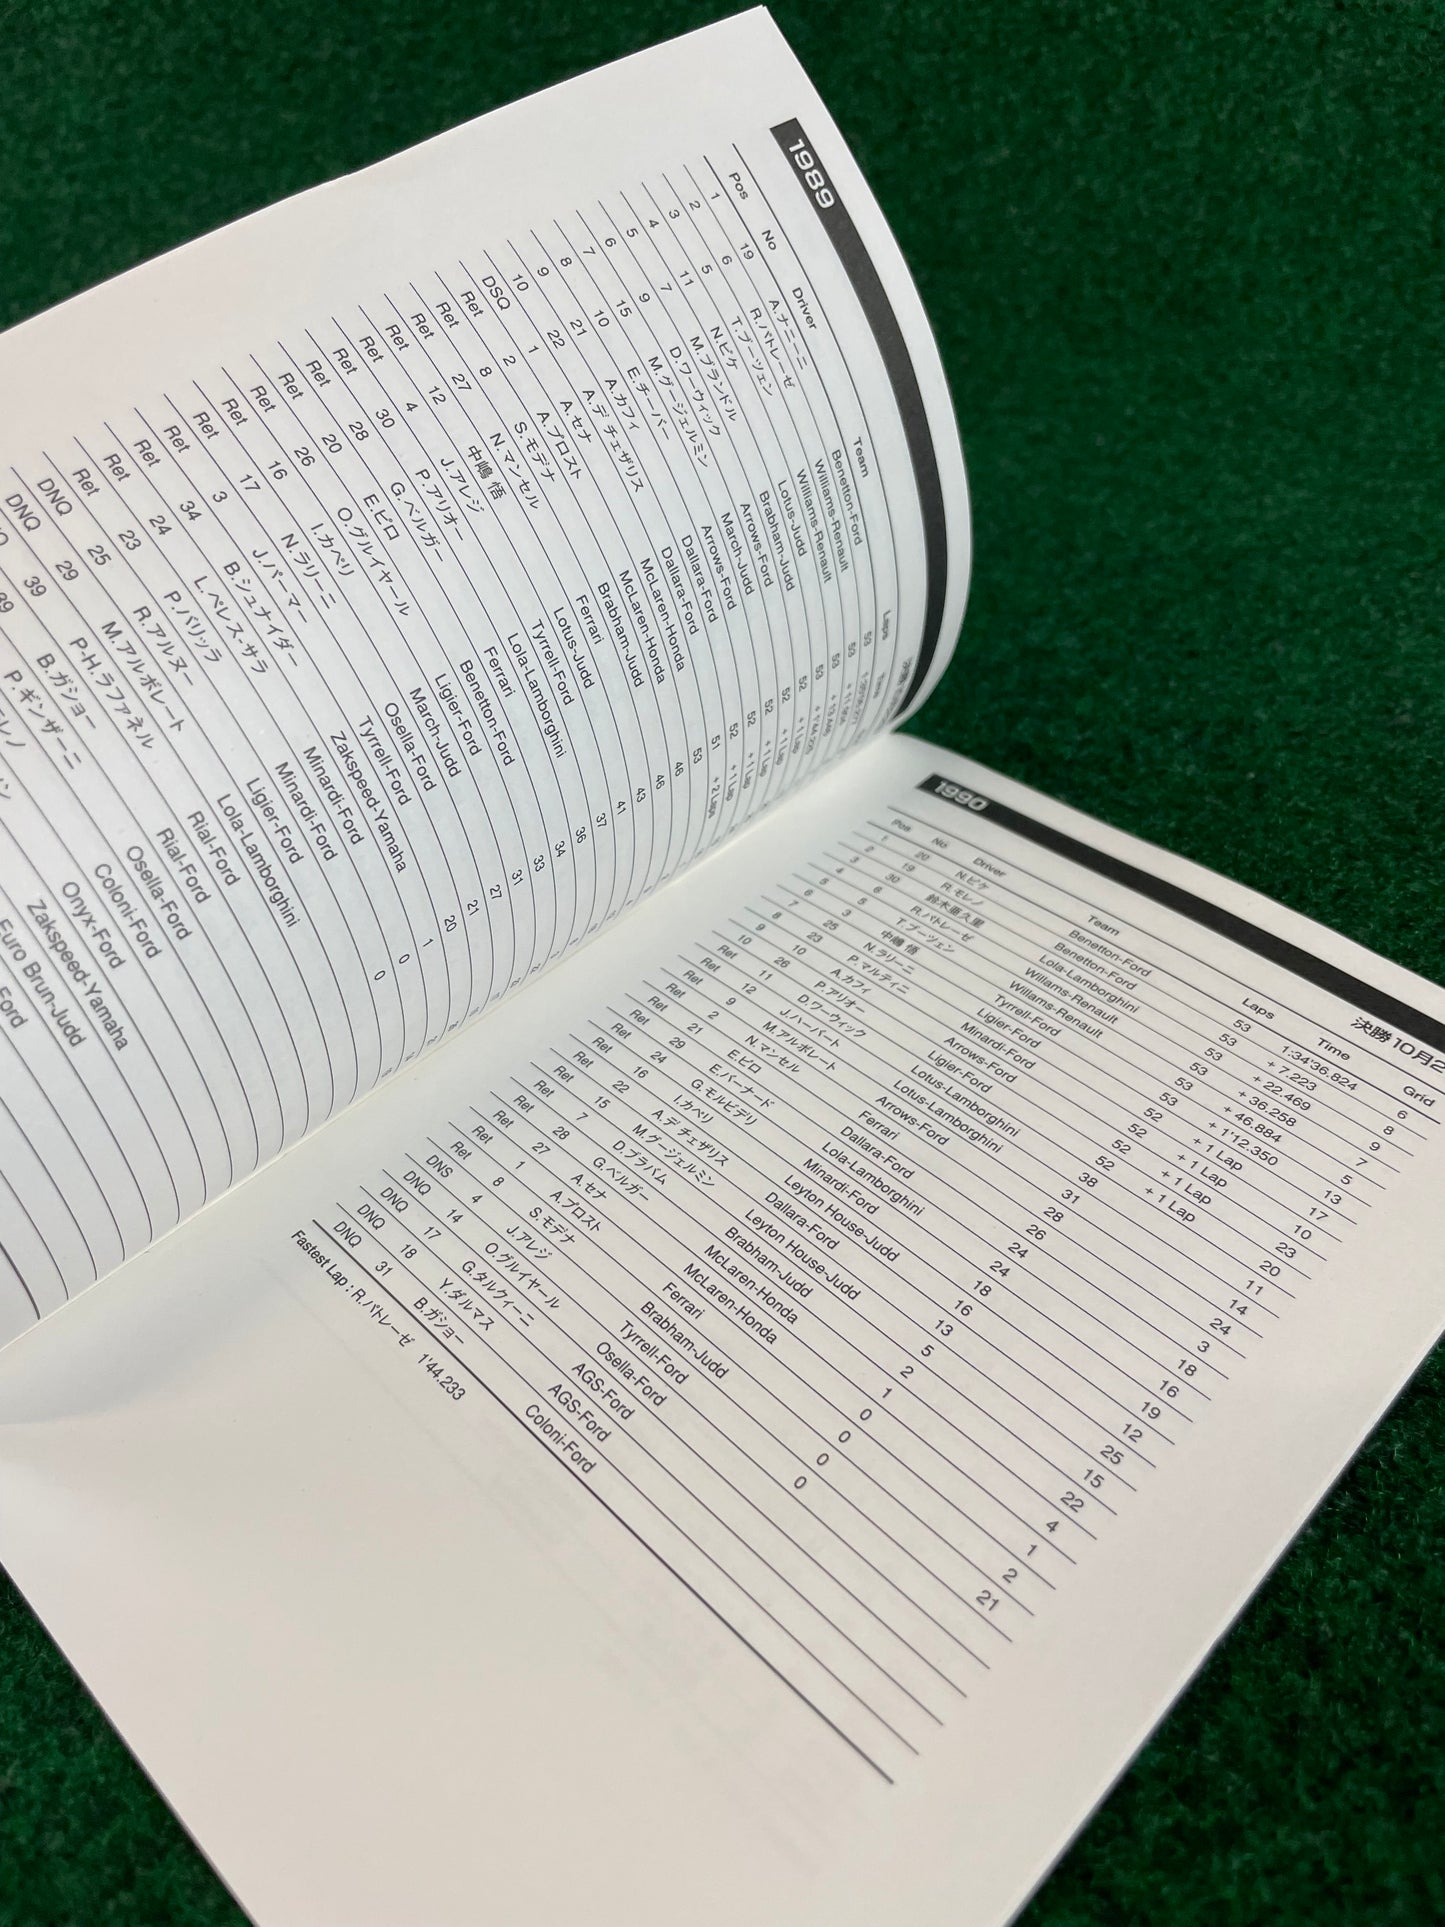 1989
Pos No Driver Team Laps Time
1 19 A.ナニーニ Benetton-Ford 53
2 6 R.パトレーゼ Williams-Renault 53
3 5 T.ブーツェン Williams-Renault 53
4 11 N.ピケ Lotus-Judd 53
5 7 M.ブランドル Brabham-Judd 52 + 1 Lap
6 9 D.ワーウィック Arrows-Ford 52 + 1 Lap
7 15 M.グージェルミン March-Judd 52 + 1 Lap
8 10 E.チーバー Arrows-Ford 52 + 1 Lap
9 21 A.カフィ Dallara-Ford 52 + 1 Lap
10 22 A.デ チェザリス Dallara-Ford 51 + 2 Laps
DSQ 1 A.セナ McLaren-Honda 53
Ret 2 A.プロスト McLaren-Honda 46
Ret 8 S.モデナ Brabham-Judd 46
Ret 27 N.マンセル Ferrari 43
Ret 12 中嶋 悟 Lotus-Judd 41
Ret 4 J.アレジ Tyrrell-Ford 37
Ret 30 P.アリオー Lola-Lamborghini 36
Ret 28 G.ベルガー Ferrari 34
Ret 20 E.ピロ Benetton-Ford 33
Ret 26 O.グルイヤール Ligier-Ford 31
Ret 16 I.カペリ March-Judd 27
Ret 17 N.ラリーニ Osella-Ford 21
Ret 3 J.パーマー Tyrrell-Ford 20
Ret 34 B.シュナイダー Zakspeed-Yamaha 1
Ret 24 L.ペレス.サラ Minardi-Ford 0
Ret 23 P.バリッラ Minardi-Ford 0
DNQ 25 R.アルヌー Ligier-Ford
DNQ 29 M.アルボレート Lola-Lamborghini
39 P-H.ラファネル Rial-Ford
B.ガショー Rial-Ford
P.ギンザーニ Osella-Ford
Coloni-Ford
Onyx-Ford
Zakspeed-Yamaha
Euro Brun-Judd
Ford
1990 決勝 10月2
Pos No Driver Team Laps Time Grid
1 20 N.ピケ Benetton-Ford 53 1:34'36.824 6
2 19 R.モレノ Benetton-Ford 53 + 7.223 8
3 30 鈴木亜久里 Lola-Lamborghini 53 + 22.469 9
4 6 R.パトレーゼ Willams-Renault 53 + 36.258 7
5 5 T.ブーツェン Willams-Renault 53 + 46.884 5
6 3 中嶋 悟 Tyrrell-Ford 53 + 1'12.350 13
7 25 N.ラリーニ Ligier-Ford 52 + 1 Lap 17
8 23 P.マルティニ Minardi-Ford 52 + 1 Lap 10
9 10 A.カフィ Arrows-Ford 52 + 1 Lap 23
10 26 P.アリオー Ligier-Ford 52 + 1 Lap 20
Ret 11 D.ワーウィック Lotus-Lamborghini 38 11
Ret 12 J.ハーバート Lotus-Lamborghini 31 14
Ret 9 M.アルボレート Arrows-Ford 28 24
Ret 2 N.マンセル Ferrari 26 3
Ret 21 E.ピロ Dallara-Ford 24 18
Ret 29 E.バーナード Lola-Lamborghini 24 16
Ret 24 G.モルビデリ Minardi-Ford 18 19
Ret 16 I.カペリ Leyton House-Judd 16 12
Ret 22 A.デ チェザリス Dallara-Ford 13 25
Ret 15 M.グージェルミン Leyton House-Judd 5 15
Ret 7 D.ブラバム Brabham-Judd 2 22
Ret 28 G.ベルガー McLaren-Honda 1 4
Ret 27 A.セナ McLaren-Honda 0 1
Ret 1 A.プロスト Ferrari 0 2
Ret 8 S.モデナ Brabham-Judd 0 21
DNS 4 J.アレジ Tyrrell-Ford 0
DNQ 14 O.グルイヤール Osella-Ford
DNQ 17 G.タルクィーニ AGS-Ford
DNQ 18 Y.ダルマス AGS-Ford
DNQ 31 B.ガショー Coloni-Ford
Fastest Lap : R.パトレーゼ 1'44.233